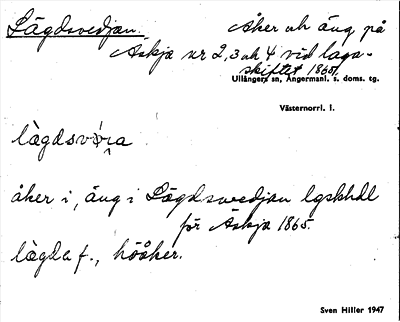 Lägdsvedjan.
Åker och äng på
Askja nr 2, 3 och 4 vid laga-
skiftet 1865.
Ullångers sn, Ångermanl. s. doms. tg.
Västernorrl. l.
åker i, äng i Lägdsvedjan lgskhdl
för Askja 1865.
lägda f., hööker.
Sven Hiller 1947